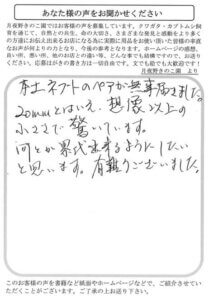 あなた様の声をお聞かせください
月夜野きのこ園ではお客様の声を募集しています。クワガタ・カブトムシ飼
育を通じて、自然との共生、命の大切さ、さまざまな発見と感動をより多く
の方達にお伝え出来るお店になる為に実際に用品をお使い頂いた皆様の率直
なお声が何よりの力となり、今後の参考となります。ホームページの感想、
良い所、悪い所、他のお店との違いなど、どんなことでも結構です、お送り
ください。応募はがきの書き方は一切自由です。文でも絵でも大歓迎です！
月夜野きのこ園 より
ネプトのペアが無事届きました。
20mmとはいえ、想像以上の
小ささで驚いています。
何とか累代出来るようにしたい
と思います。有難うございました。
このお客様の声を書籍など紙面やホームページなどで、ご紹介させてい
ただくことがございます。ご了承の上お送り下さい。